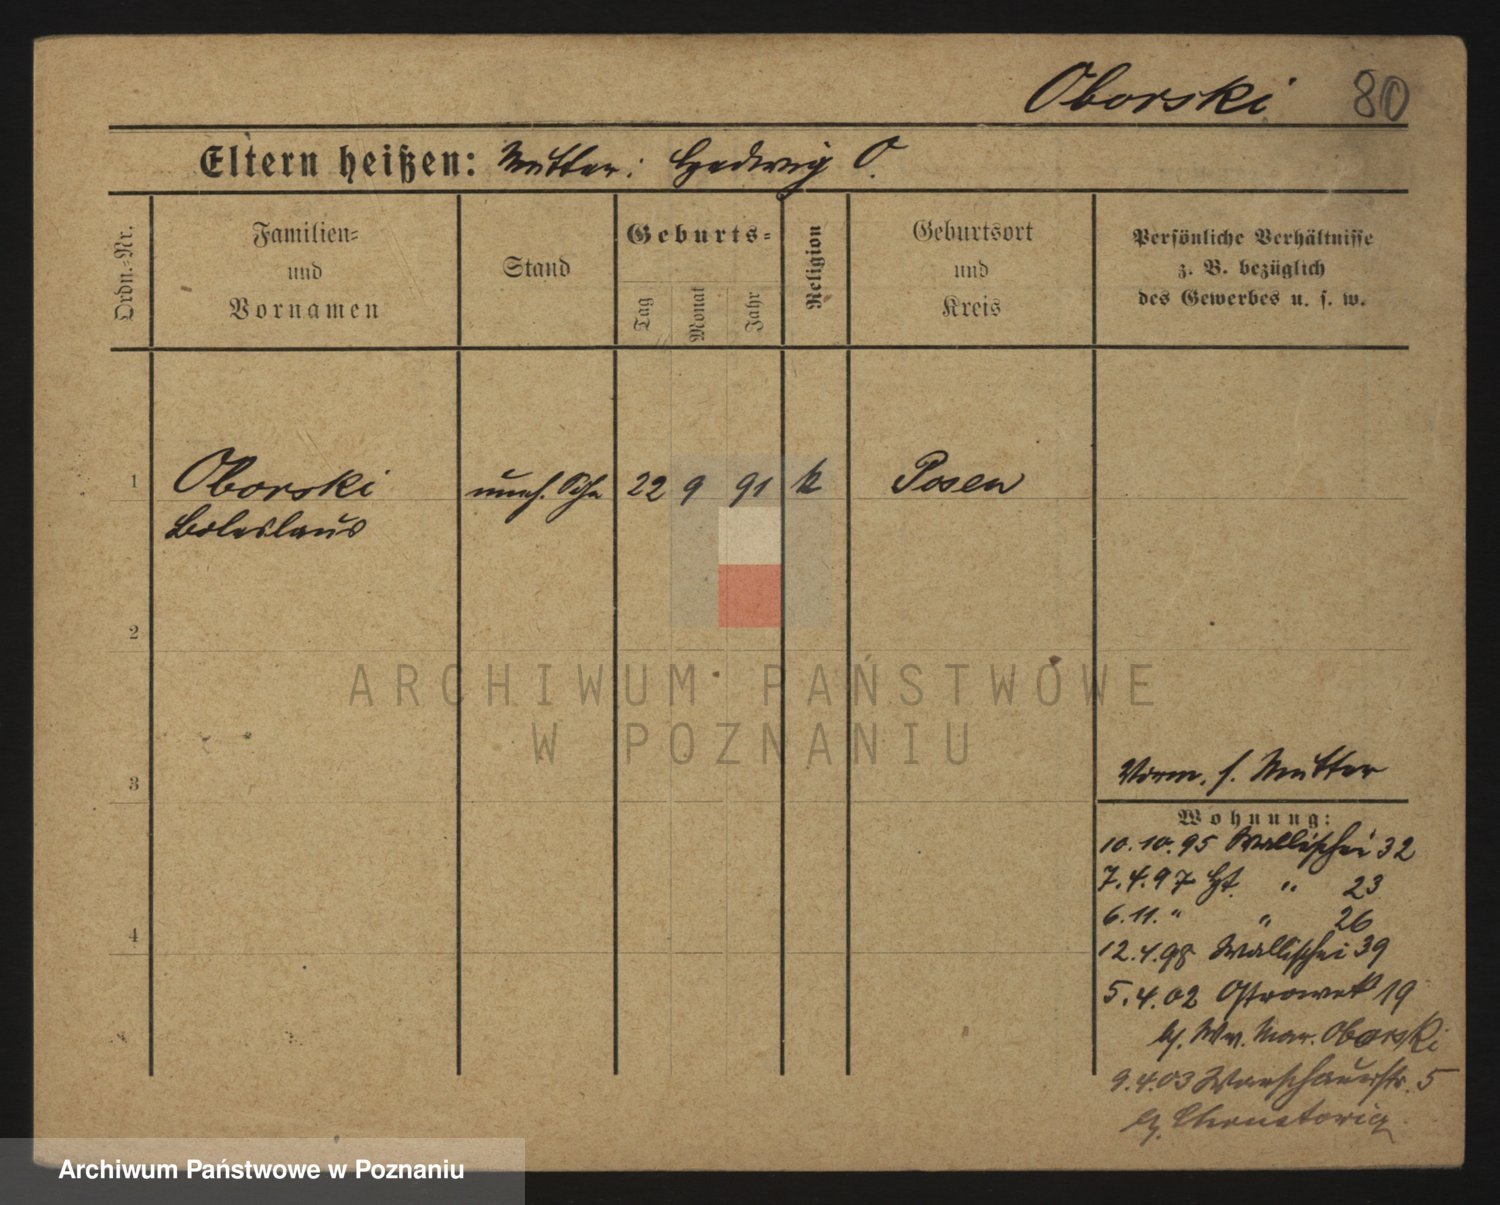 Oborski 80
Eltern heißen: Mutter: Hedwig O.
Ordn.-Nr.
Familien-
und
Vornamen
Stand
Geburts-
Tag
Monat
Jahr
Religion
Geburtsort
und
Kreis
Persönliche Verhältnisse
z. B. bezüglich
des Gewerbes u. s. w.
1 Oborski uneh. Sohn 22 9 91 k Posen
Boleslaus
2
ARCHIWUM PAŃSTWOWE
W POZNANIU
3
Vorm. s. Mutter
Wohnung:
10.10.95 Wallischei 32
7.4.97 Ht. " 23
6.11. " " 26
4
12.4.98 Wallischei 39
5.4.02 Ostrowek 19
b/. Ww. Mar. Oborski
9.4.03 Warschauerstr. 5
b/.
Archiwum Państwowe w Poznaniu